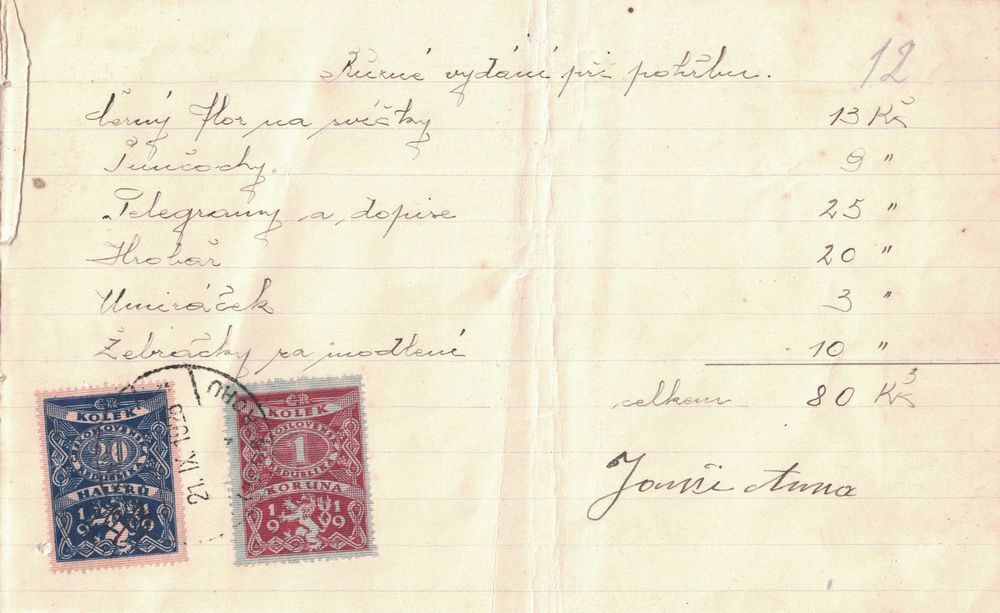 Různé vydání při pohřbu.
12
černý flor na svíčky 13 Kč
Punčochy 9 "
Telegramy a dopise 25 "
Hrobář 20 "
Umíráček 3 "
Žebračky za modlení 10 "
celkem 80 Kč
Anna
ČR
KOLEK
ČESKOSLOVENSKÁ
20
REPUBLIKA
HALÉŘŮ
1919
ČR
KOLEK
ČESKOSLOVENSKÁ
1
REPUBLIKA
KORUNA
1919
21. IX.